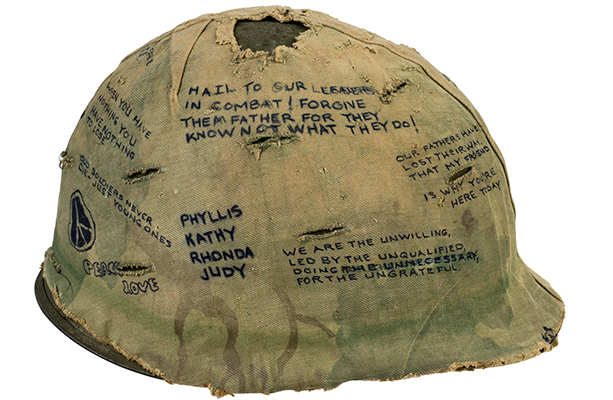 WHEN YOU HAVE
NOTHING YOU
HAVE NOTHING
TO LOSE
OLD SOLDIERS NEVER
DIE - JUST YOUNG ONES
PEACE
LOVE
HAIL TO OUR LEADERS
IN COMBAT! FORGIVE
THEM FATHER FOR THEY
KNOW NOT WHAT THEY DO!
PHYLLIS
KATHY
RHONDA
JUDY
OUR FATHERS HAVE
LOST THEIR WAY,
THAT MY FRIEND
IS WHY YOU'RE
HERE TODAY
WE ARE THE UNWILLING,
LED BY THE UNQUALIFIED,
DOING THE UNNECESSARY,
FOR THE UNGRATEFUL